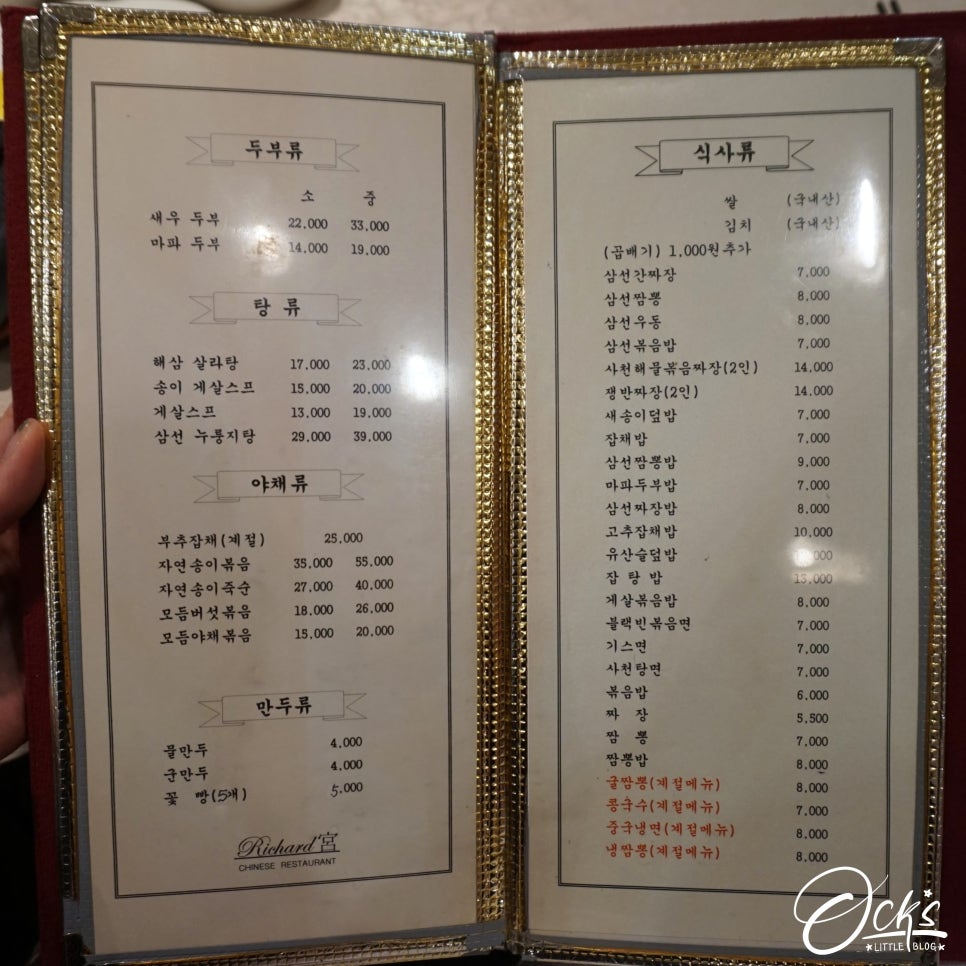 두부류
소 중
새우 두부 22,000 33,000
마파 두부 14,000 19,000
탕 류
해삼 살라탕 17,000 23,000
송이 게살스프 15,000 20,000
게살스프 13,000 19,000
삼선 누룽지탕 29,000 39,000
야채류
부추잡채(계절) 25,000
자연송이볶음 35,000 55,000
자연송이죽순 27,000 40,000
모듬버섯볶음 18,000 26,000
모듬야채볶음 15,000 20,000
만두류
물만두 4,000
군만두 4,000
꽃 빵(5개) 5,000
Richard宮
CHINESE RESTAURANT
식사류
쌀 (국내산)
김치 (국내산)
(곱배기) 1,000원추가
삼선간짜장 7,000
삼선짬뽕 8,000
삼선우동 8,000
삼선볶음밥 7,000
사천해물볶음짜장(2인) 14,000
쟁반짜장(2인) 14,000
새송이덮밥 7,000
잡채밥 7,000
삼선짬뽕밥 9,000
마파두부밥 7,000
삼선짜장밥 8,000
고추잡채밥 10,000
유산슬덮밥
잡 탕 밥 13,000
게살볶음밥 8,000
블랙빈볶음면 7,000
기스면 7,000
사천탕면 7,000
볶음밥 6,000
짜 장 5,500
짬 뽕 7,000
짬뽕밥 8,000
굴짬뽕(계절메뉴) 8,000
콩국수(계절메뉴) 7,000
중국냉면(계절메뉴) 8,000
냉짬뽕(계절메뉴) 8,000
Ock's
LITTLE BLOG